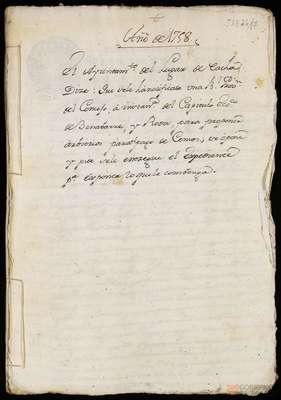 Año de 1758.
El Ayuntam.to del Lugar de
Dize: Que se le ha notificado una R.l Prov.
del Consejo, á instan.a del Capitulo Ecc.o
de Benabarre, y Rosa, para proponer
arbitrios para pago de Censos, se opone
y pide se le entregue el expediente
p.a exponer lo que le combenga.